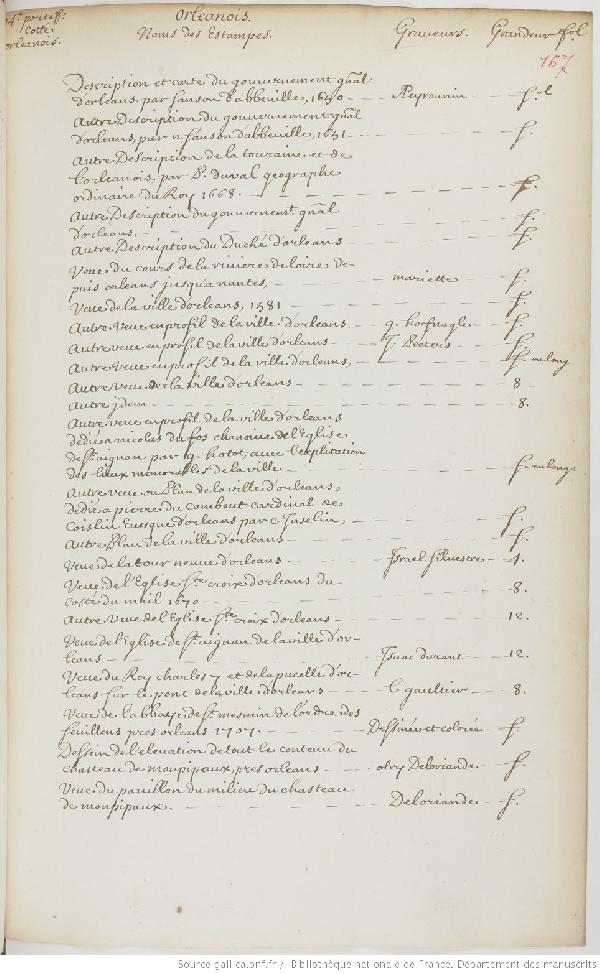 4e. porteffe. Orleanois.
Cotté orleanois. Noms des Estampes. Graveurs. Grandeur fol
167
Description et carte du gouvernement gñal
d'orleans, par sanson d'abbeuille, 1650 — Peyrounin — f.l
autre Description du gouvernement gñal
d'orleans, par n. sanson d'abbeuille, 1651 — f.
Autre Description de la touraine et de
l'orleanois, par P. duval geographe
ordinaire du Roy 1668. — f.
Autre Description du gouvernemt. gñal
d'orleans, — f.
Autre Description du Duché d'orleans — f.
Veue du cours de la riviere de loire de-
puis orleans jusqu'a nantes, — mariette — f.
Veue de la ville d'orleans, 1581 — f.
Autre Veue en profil de la ville d'orleans — g. hoefnagle — f.
Autre veue en profil de la ville d'orleans — J. Peeters — f.
Autre Veue en profil de la ville d'orleans, — f. en long
Autre Veue de la ville d'orleans — 8
Autre jdem — 8.
Autre veue en profil de la ville d'orleans
dediée a nicolas du fos chanoine de l'Eglise
de St. aignan par g. hotot, avec l'explication
des lieux memorables de la ville — f. en long
Autre veue ou Plan de la ville d'orleans,
dedié a pierre du cambout cardinal de
Coislin Euesque d'orleans par c. Inselin, — f.
Autre Plan de la ville d'orleans — f.
Veue de la tour neuue d'orleans — Israel silvestre — 4.
Veue de l'Eglise Ste. croix d'orleans du
costé du mail 1670 — 8.
Autre Veue de l'Eglise Ste. croix d'orleans — 12.
Veue de l'Eglise de St. aignan de la ville d'or-
leans — Isaac durant — 12.
Veue du Roy charles 7 et de la pucelle d'or-
leans sur le pont de la ville d'orleans — L. gaultier — 8.
Veue de l'abbaye de St. mesmin de l'ordre des
feuillens pres orleans 1707. — Dessinée et colorée — f.
Dessein de l'elevation de tout le contenu du
chasteau de monpipaux, pres orleans — olry Deloriande — f.
Veue du pauillon du milieu du chasteau
de monpipaux. — Deloriande — f.
Source gallica.bnf.fr / Bibliothèque nationale de France. Département des manuscrits